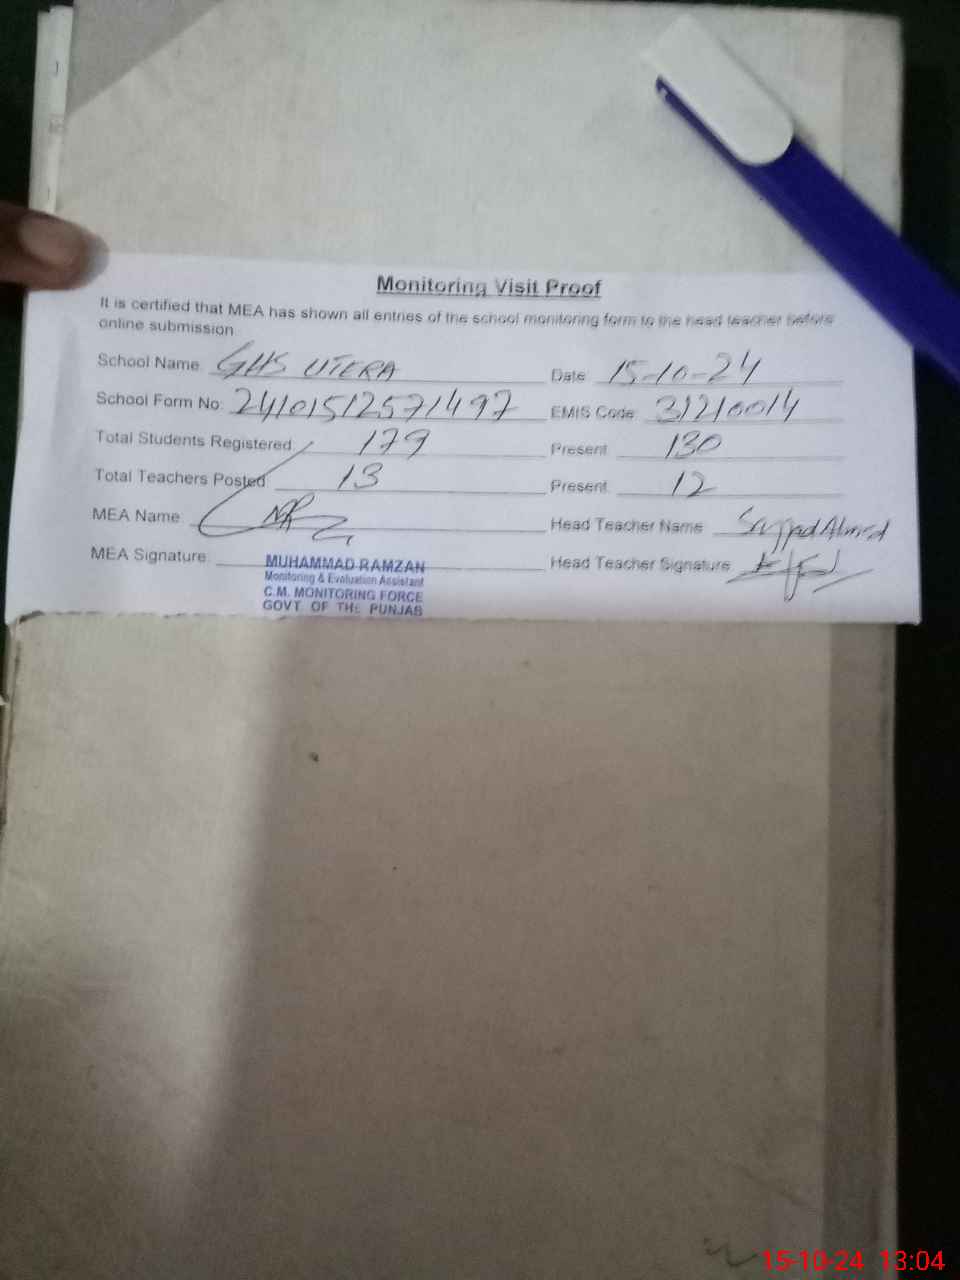 Monitoring Visit Proof
It is certified that MEA has shown all entries of the school monitoring form to the head teacher before
online submission
School Name GHS UTERA Date 15-10-24
School Form No: 2410151257 1497 EMIS Code 31210014
Total Students Registered 179 Present 130
Total Teachers Posted 13 Present 12
MEA Name Head Teacher Name Sajjad Ahmed
MEA Signature Head Teacher Signature
MUHAMMAD RAMZAN
Monitoring & Evaluation Assistant
C.M. MONITORING FORCE
GOVT OF THE PUNJAB
15-10-24 13:04